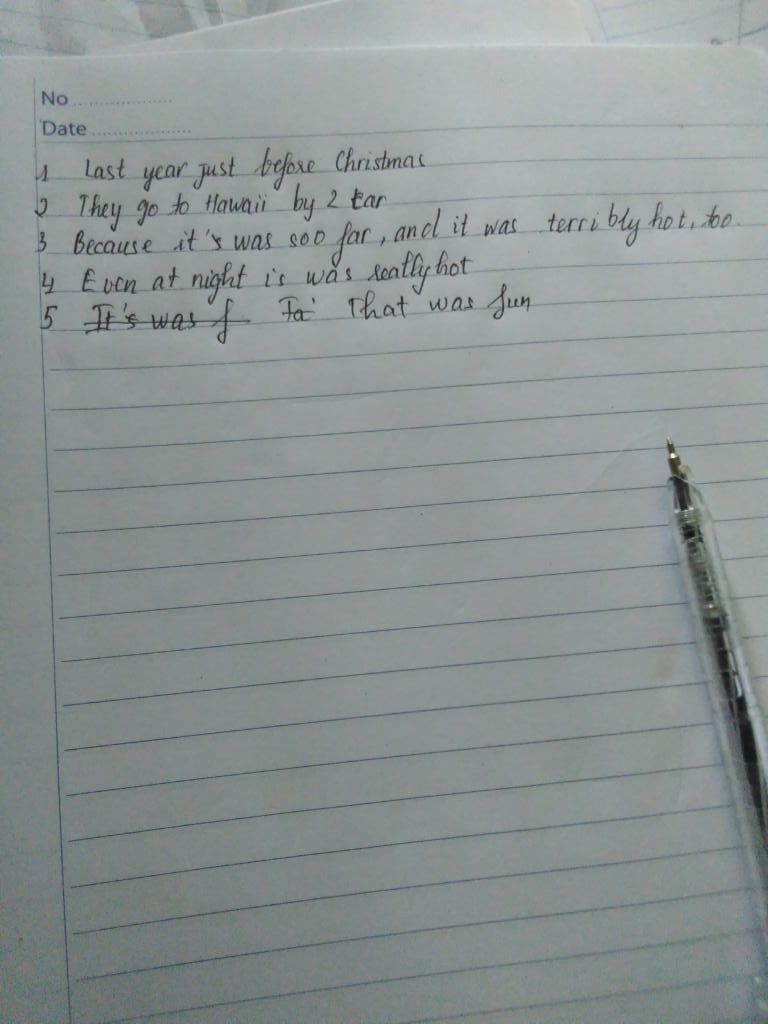 No ....................
Date ....................
1 Last year just before Christmas
2 They go to Hawaii by 2 car
3 Because it's was soo far, and it was terribly hot, too.
4 Even at night is was really hot
5 It's was f Fa' That was fun